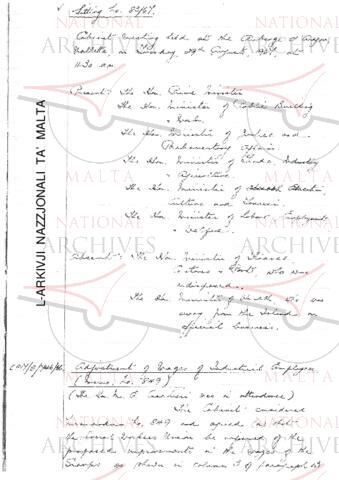 Sitting No. 83/67.
Cabinet meeting held at the Auberge d'Aragon,
Valletta on Tuesday, 29th August, 1967, at
11.30 a.m.
Present: The Hon. Prime Minister
The Hon. Minister of Public Building
& Works.
The Hon. Minister of Justice and
Parliamentary Affairs.
The Hon. Minister of Trade, Industry
& Agriculture.
The Hon. Minister of Education,
Culture and Tourism.
The Hon. Minister of Labour, Employment
& Welfare.
Absent: The Hon. Minister of Finance,
Customs & Ports, who was
indisposed.
The Hon. Minister of Health, who was
away from the Island on
official business.
Adjustment of Wages of Industrial Employees
(Memo. No. 849)
(The Hon. was in attendance)
The Cabinet considered
Memorandum No. 849 and agreed that
the General Workers Union be informed of the
proposed improvements in the wages of the
as shown in column 3 of paragraph 13
L-ARKIVJI NAZZJONALI TA' MALTA
NATIONAL
ARCHIVES
MALTA